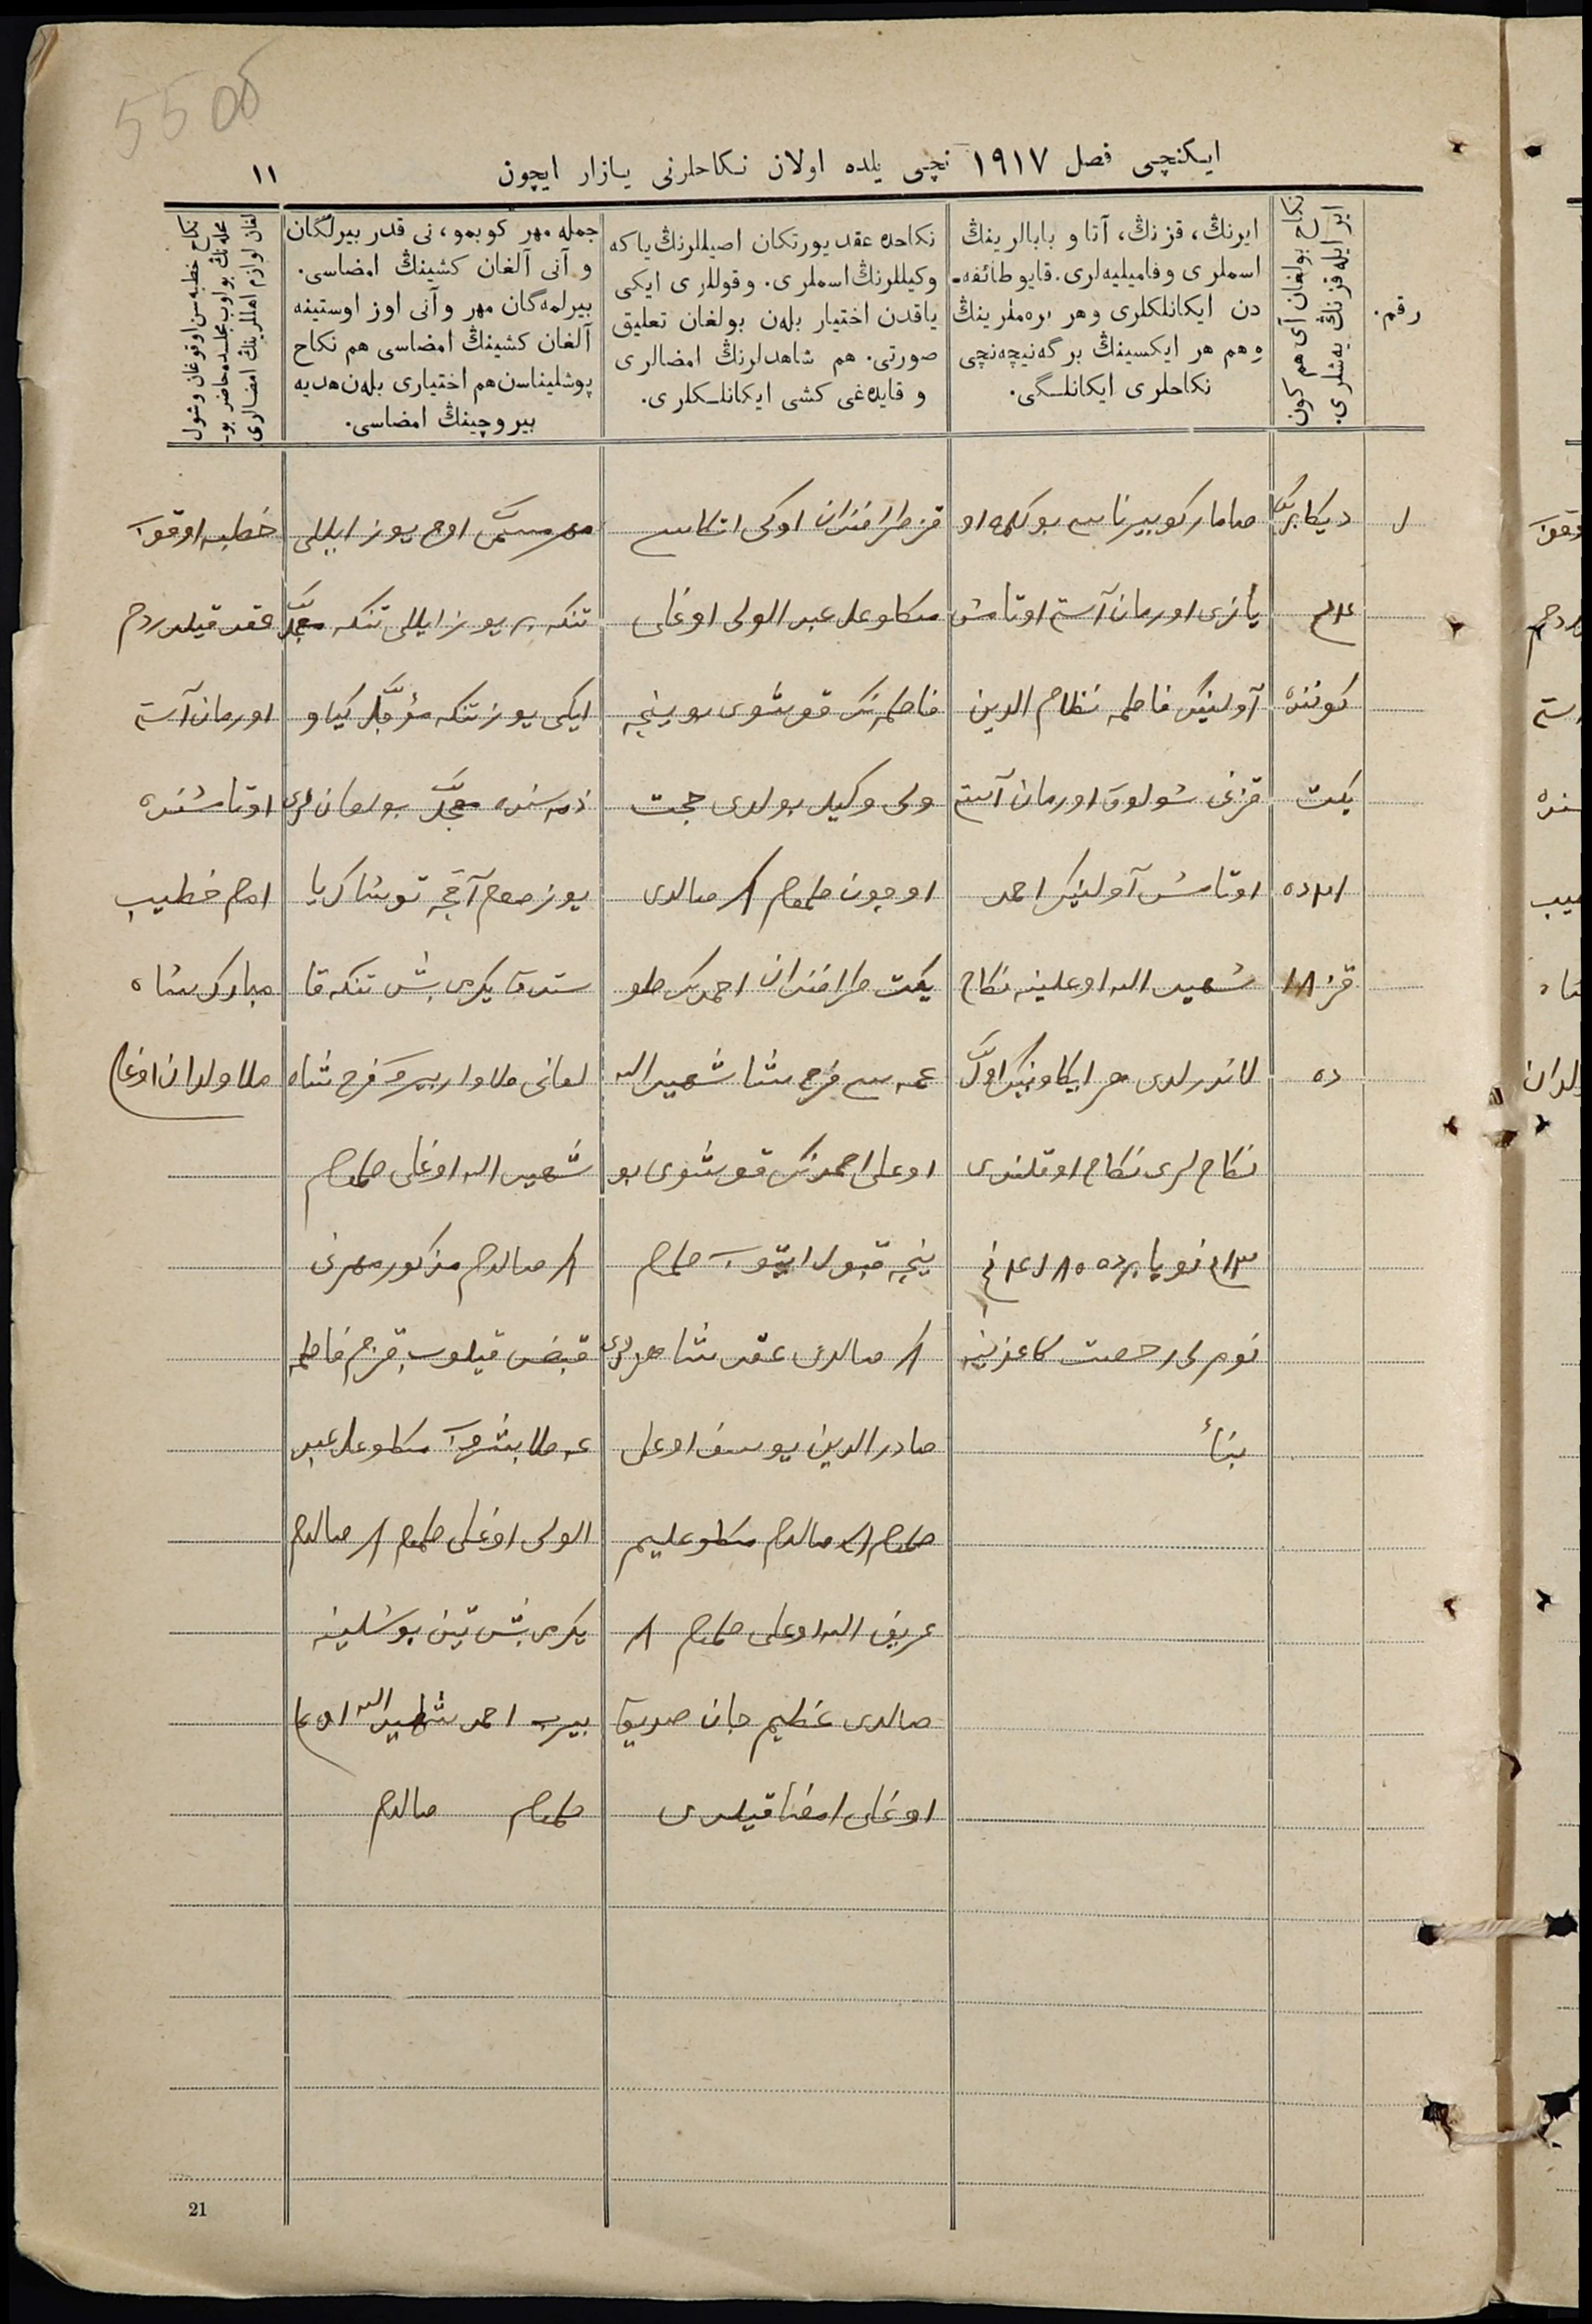 5505
ایكنچی فصل ١٩١٧ نچی یلده اولان نكاحلرنی یازار ایچون
١١
رقم.
نكاح بولغان آی هم كون
ایر ایله قزنڭ یه‌شلری.
ایرنڭ، قزنڭ، آتا و بابالرینڭ
اسملری وفامیلیه‌لری. قایو طائفه‌ـ
دن ایكانلكلری وهر بره‌ملرینڭ
وهم هر ایكسینڭ برگه‌نیچه‌نچی
نكاحلری ایكانلـگی.
نكاحده عقد یورتكان اصیللرنڭ یاكه
وكیللرنڭ اسملری. وقوللری ایكی
یاقدن اختیار بله‌ن بولغان تعلیق
صورتی. هم شاهدلرنڭ امضالری
و قایده‌غی كشی ایكانلـكلری.
جمله مهر كوبمو، نی قدر بیرلگان
و آنی آلغان كشینڭ امضاسی.
بیرلمه‌گان مهر وآنی اوز اوستینه
آلغان كشینڭ امضاسی هم نكاح
پوشلیناسن هم اختیاری بله‌ن هدیه
بیروچینڭ امضاسی.
نكاح خطبه‌سن اوقوغان وشول
محله‌نڭ بولوب مجلسده حاضر بو‌ـ
لغان لوازم اهللرینڭ امضالری
١
دیكابر
٢٤
كوننده
یكت
٢١ ده
قز ١٨
ده
صامار كوبیرناسی بوكلمه او
یازی اورمان آستی اوتامش
آولینڭ فاطمه نظام الدین
قزی شولوق اورمان آستی
اوتامش آولینڭ احمد
شهید الله اوغلینه نكاح
لاندرلدی هر ایكاونیڭ اوّل
نكاح لری نكاح اوقلندی
نومرلی رخصت كاغزینه
بناءً
قز طرافندان اوكی اتكاسی
منكلوعلی عبد الولی اوغلی
فاطمه‌نڭ قوشوی بوینچه
ولی وكیل بولدی حجت
اوچون طمغام ٨ صالدی
یكت طرافندان احمدنڭ
عمه سی فرح شا شهید الله
اوغلی احمدنڭ قوشوی بو
ینچه قبول ایتوب طمغام
٨ صالدی عقد شاهدلری
صادر الدین یوسف اوغلی
طمغام ٨ صالدم منكلو علیم
عریف الله اوغلی طمغام ٨
صالدی عظیم جان صدیق
اوغلی امضا قیلدی
مهر مسمّی اوچ یوز ایللی
تنكه بر یوز ایللی تنكه معجّل
ایكی یوز تنكه مؤجّل كیاو
ذمه سنده معجّل بولغان
یوز صوم آقچه توشاك یا
ستق یكرمی بش تنكه قا
لغانی ملا وار بیرو فرح شاه
شهید الله اوغلی طمغام
٨ صالدم مذكور مهرنی
قبض قیلوب قزم فاطمه
منكلوعلی عبد
الولی اوغلی طمغام ٨ صالدم
یكرمی بش تین پوشلینه
بیرب احمد شهید الله اوغلی
طمغام صالدم
خطبه اوقوب
عقد قیلدردم
اورمان آستی
اوتامشنده
امام خطیب
مبارك شاه
ملا ولدان اوغلی
21